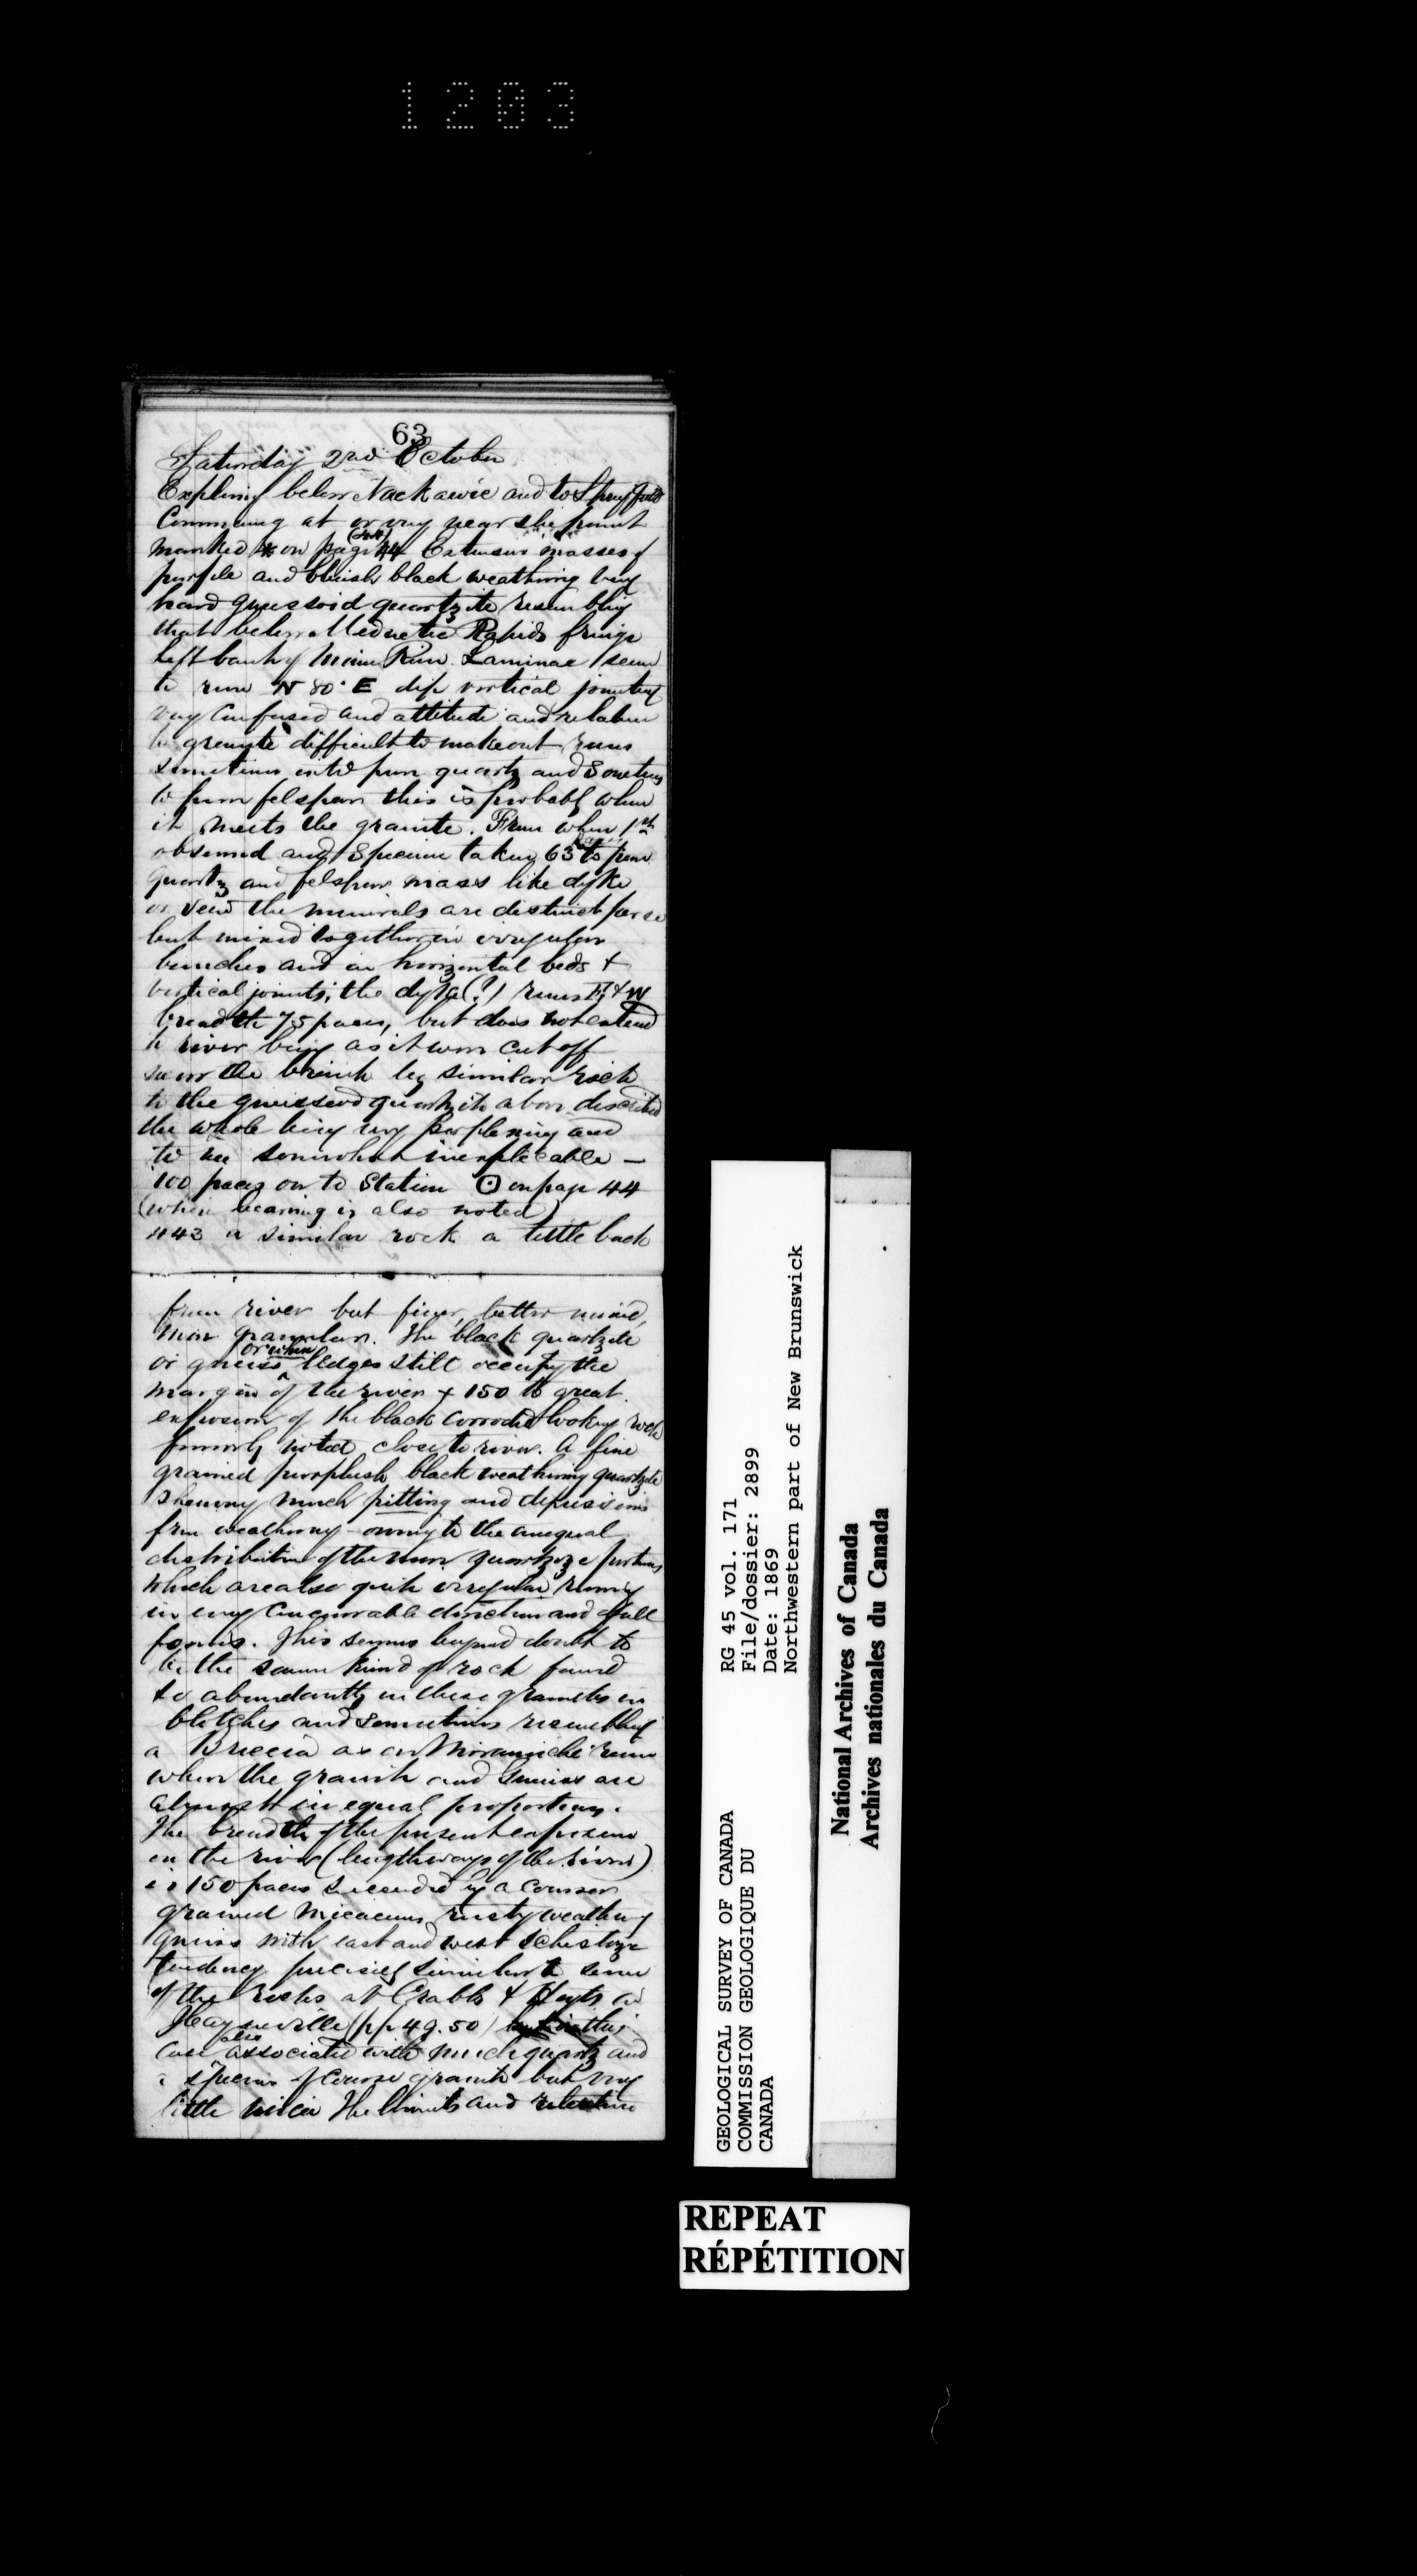 1203
63
Saturday 2nd October
Exploring below Nackawic and to Springfield
Commencing at or very near the point
marked * on page 44 Extensive masses of
purple and bluish black weathering very
hard gneissoid quartzite resembling
that below Meductic Rapids fringe
left bank of Main River. Laminae seem
to run N 80° E dip vertical jointing
very confused and attitude and relation
to granite difficult to make out runs
sometimes into pure quartz and sometimes
to pure felspar this is probably when
it meets the granite. From when 1st
observed and specimen taken 63 to pure
quartz and felspar mass like dyke
or vein the minerals are distinct per se
but mixed together in irregular
bunches and in horizontal beds +
vertical joints; the dyke (?) runs E + W
breadth 75 paces, but does not extend
to river being as it were cut off
near the brink by similar rock
to the gneissoid quartzite above described
the whole being very perplexing and
to me somewhat inexplicable —
100 paces on to Station ⊙ on page 44
(when bearing is also noted)
443 a similar rock a little back
from river but finer, better mixed,
more granular. The black quartzite
or gneiss ledges still occupy the
margin of the river + 150 to great
exposure of the black corroded looking rock
formerly noted close to river. A fine
grained purplish black weathering quartzite
shewing much pitting and depressions
from weathering - owing to the unequal
distribution of the more quartzoze portions
which are also quite irregular running
in every conceivable direction and of all
forms. This seems beyond doubt to
be the same kind of rock found
so abundantly in these granites in
blotches and sometimes resembling
a Breccia as on Miramichi river
when the granite and Gneiss are
almost in equal proportions.
The breadth of the present exposure
on the river (lengthways of the river)
is 150 paces succeeded by a coarser
grained micaceous rusty weathering
gneiss with east and west schistoze
tendency precisely similar to some
of the rocks at Crabbs + Hoyts in
Hayneville (pp 49.50)
case also associated with much quartz and
a species of coarse granite but very
little mica The limits and relative
GEOLOGICAL SURVEY OF CANADA
COMMISSION GEOLOGIQUE DU
CANADA
RG 45 vol. 171
File/dossier: 2899
Date: 1869
Northwestern part of New Brunswick
National Archives of Canada
Archives nationales du Canada
REPEAT
RÉPÉTITION